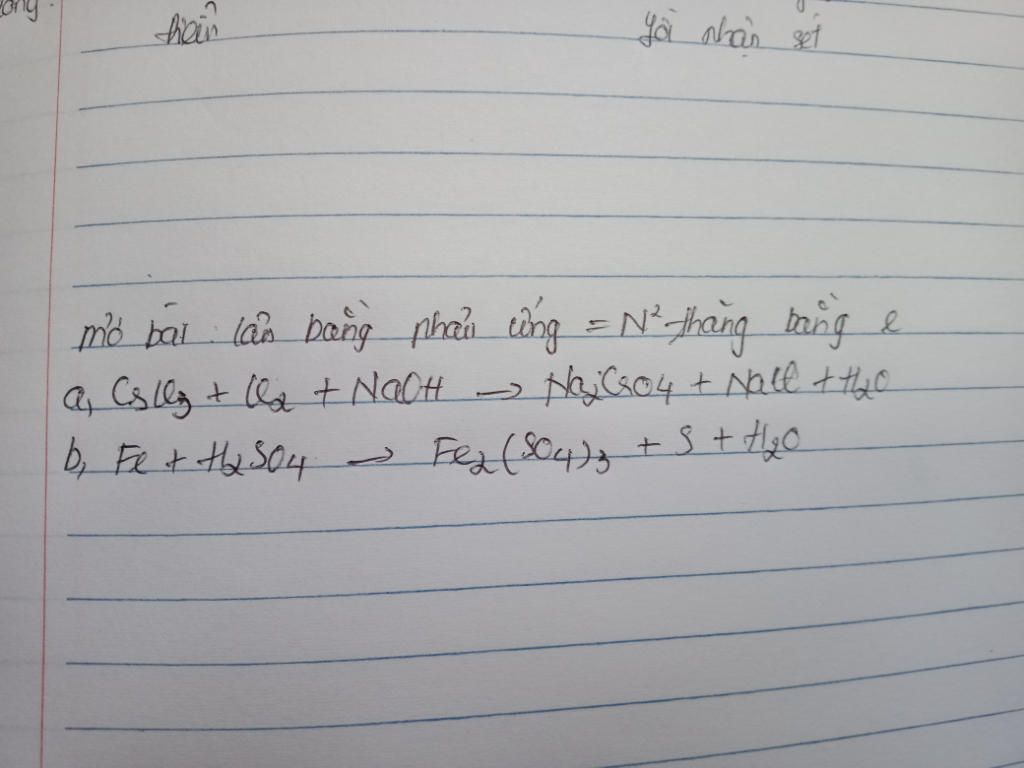 điểm Lời nhận xét
mở bài: cân bằng phản ứng = N²-thăng bằng e
a, CrCl₃ + Cl₂ + NaOH → Na₂CrO₄ + NaCl + H₂O
b, Fe + H₂SO₄ → Fe₂(SO₄)₃ + S + H₂O